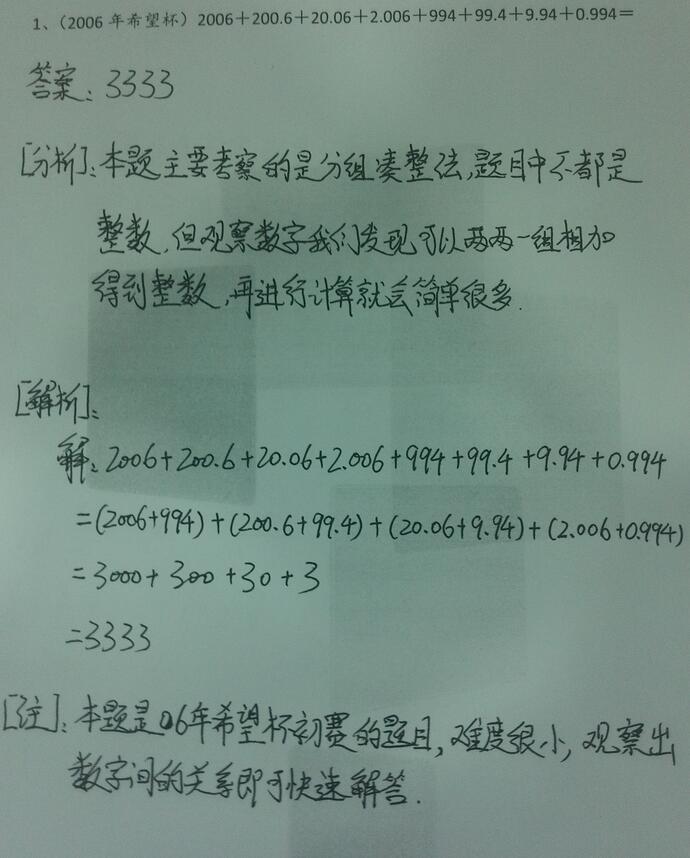 1、（2006 年希望杯）2006＋200.6＋20.06＋2.006＋994＋99.4＋9.94＋0.994＝
答案：3333
[分析]：本题主要考察的是分组凑整法，题目中不都是
整数，但观察数字我们发现可以两两一组相加
得到整数，再进行计算就会简单很多.
[解析]：
解：2006+200.6+20.06+2.006+994+99.4+9.94+0.994
=(2006+994)+(200.6+99.4)+(20.06+9.94)+(2.006+0.994)
=3000+300+30+3
=3333
[注]：本题是06年希望杯初赛的题目，难度很小，观察出
数字间的关系即可快速解答.